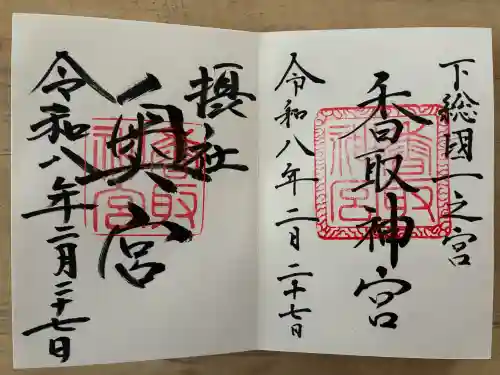 下総國一之宮
香取神宮
令和八年二月二十七日
摂社
奥宮
令和八年二月二十七日
香取神宮
香取神宮